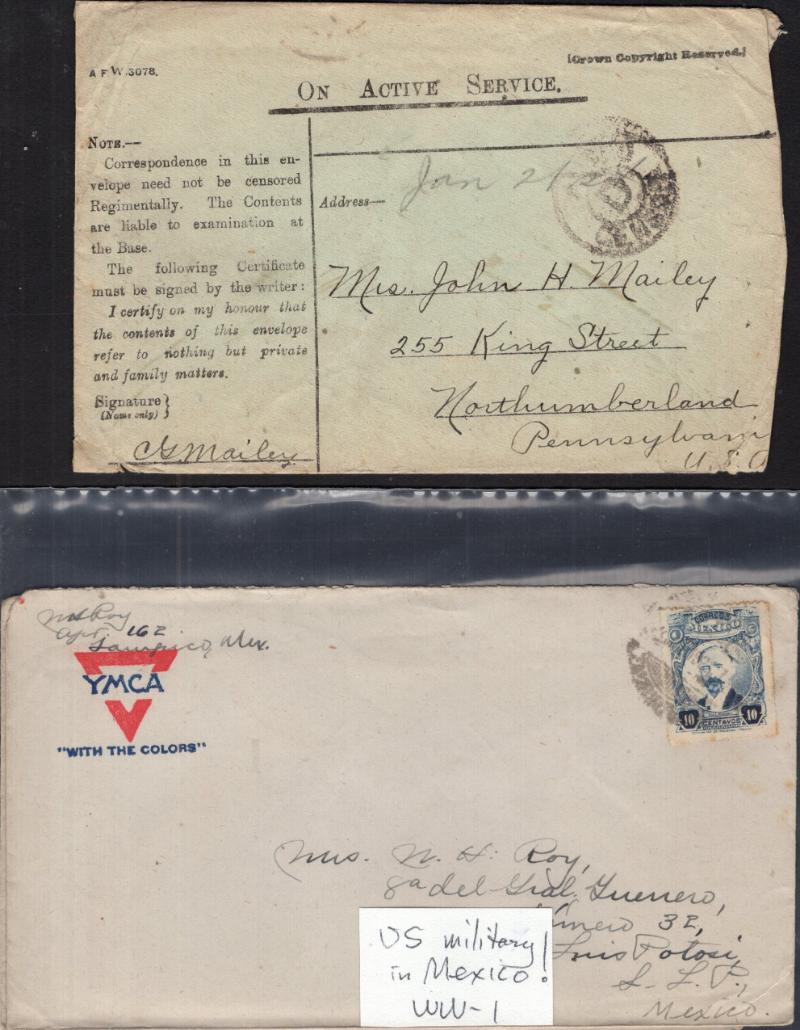 A F W.3078.
[Crown Copyright Reserved.]
ON ACTIVE SERVICE.
NOTE.—
Correspondence in this en-
velope need not be censored
Regimentally. The Contents
are liable to examination at
the Base.
The following Certificate
must be signed by the writer:
I certify on my honour that
the contents of this envelope
refer to nothing but private
and family matters.
Signature }
(Name only)
CGMailey
Jan 21
Address—
Mrs. John H. Mailey
255 King Street
Northumberland
Pennsylvani
U.S.A
Roy
Apt 162
Tampico, Mex.
YMCA
"WITH THE COLORS"
CORREOS
MEXICO
10 CENTAVOS 10
Mrs. N. H. Roy,
8a del Gral. Guerrero,
mero 32,
Luis Potosi,
S. L. P.,
Mexico.
US military
in Mexico!
WW-1